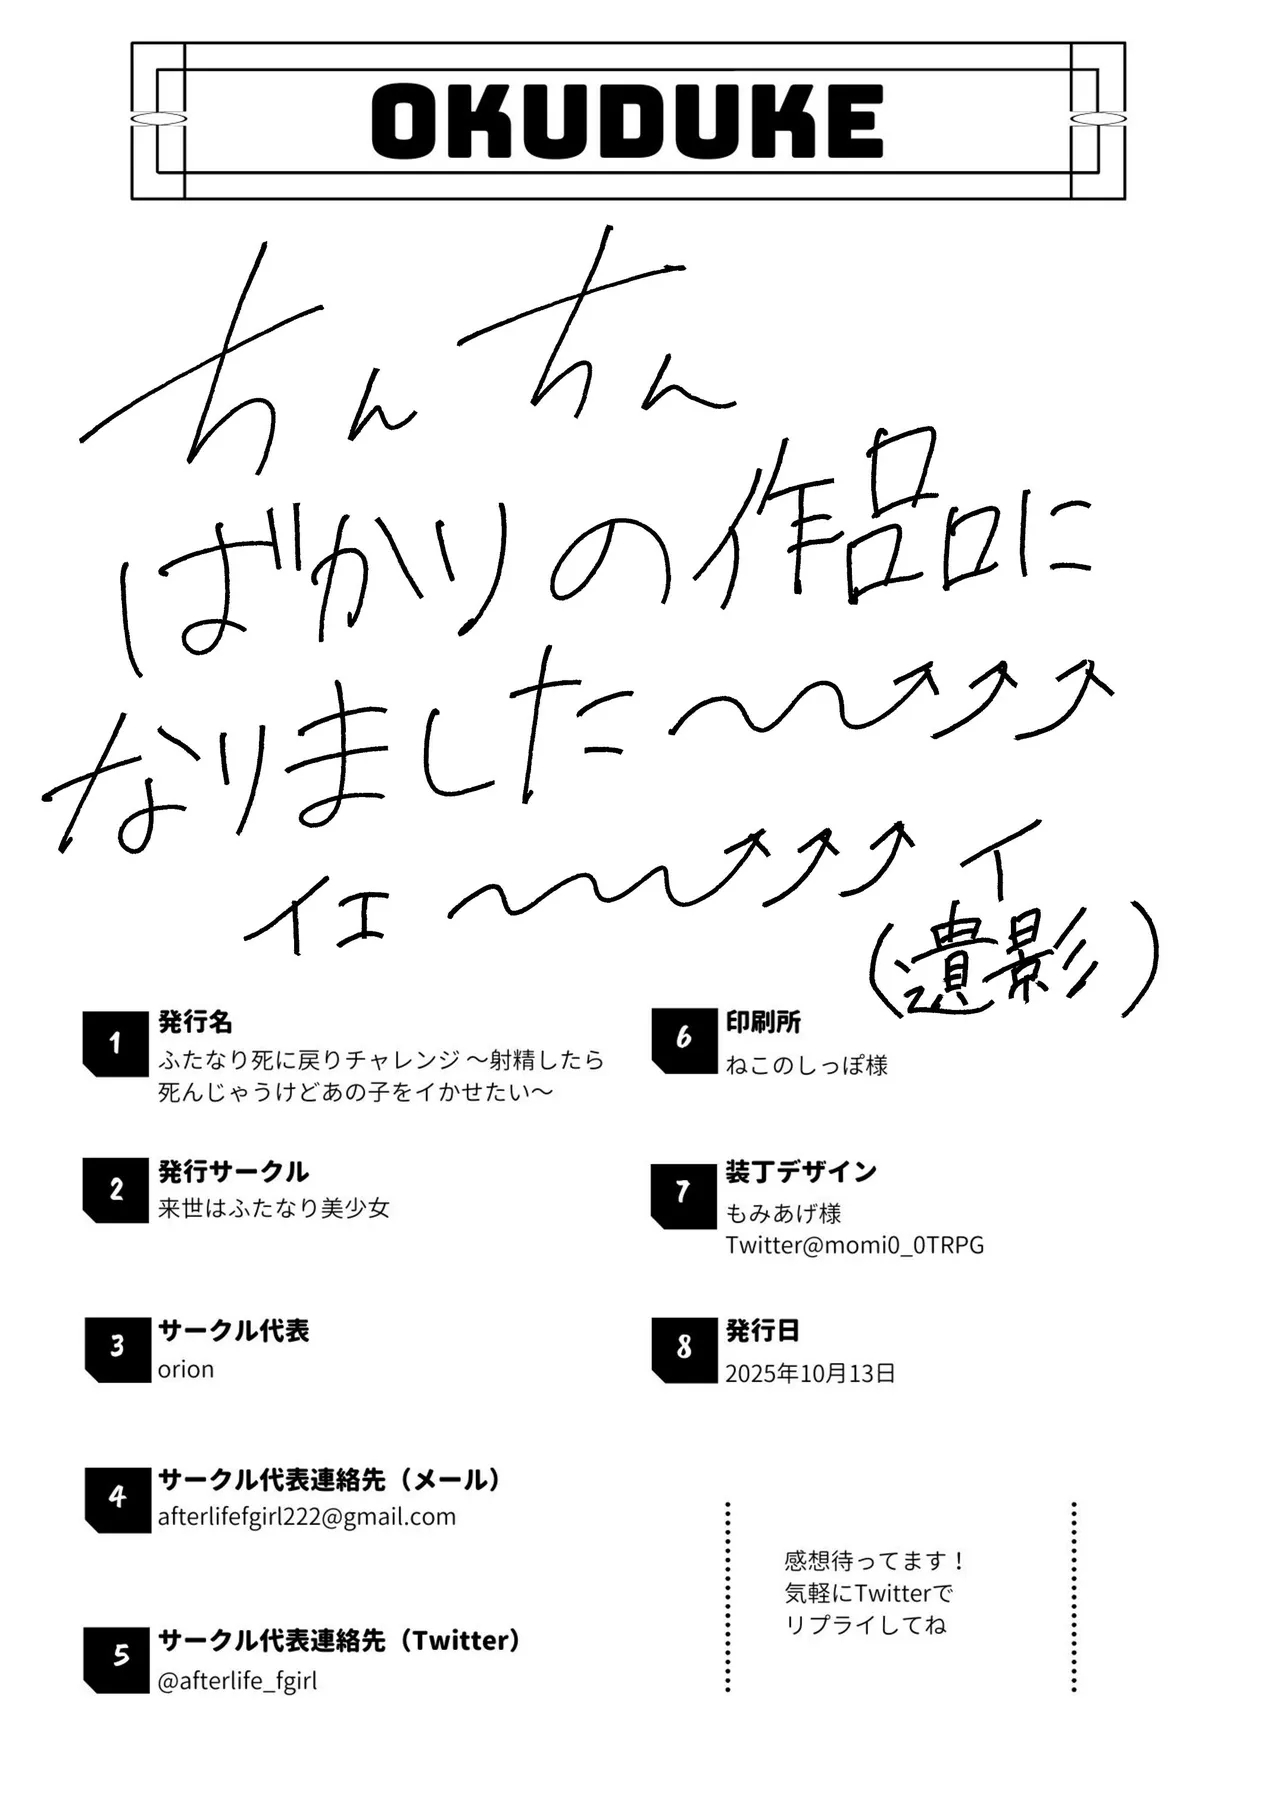 OKUDUKE
ちんちん
ばかりの作品に
なりました〜〜↗↗↗
イェ〜〜↗↗↗イ
（遺影）
1
発行名
ふたなり死に戻りチャレンジ 〜射精したら
死んじゃうけどあの子をイかせたい〜
2
発行サークル
来世はふたなり美少女
3
サークル代表
orion
4
サークル代表連絡先（メール）
afterlifefgirl222@gmail.com
5
サークル代表連絡先（Twitter）
@afterlife_fgirl
6
印刷所
ねこのしっぽ様
7
装丁デザイン
もみあげ様
Twitter@momi0_0TRPG
8
発行日
2025年10月13日
感想待ってます！
気軽にTwitterで
リプライしてね